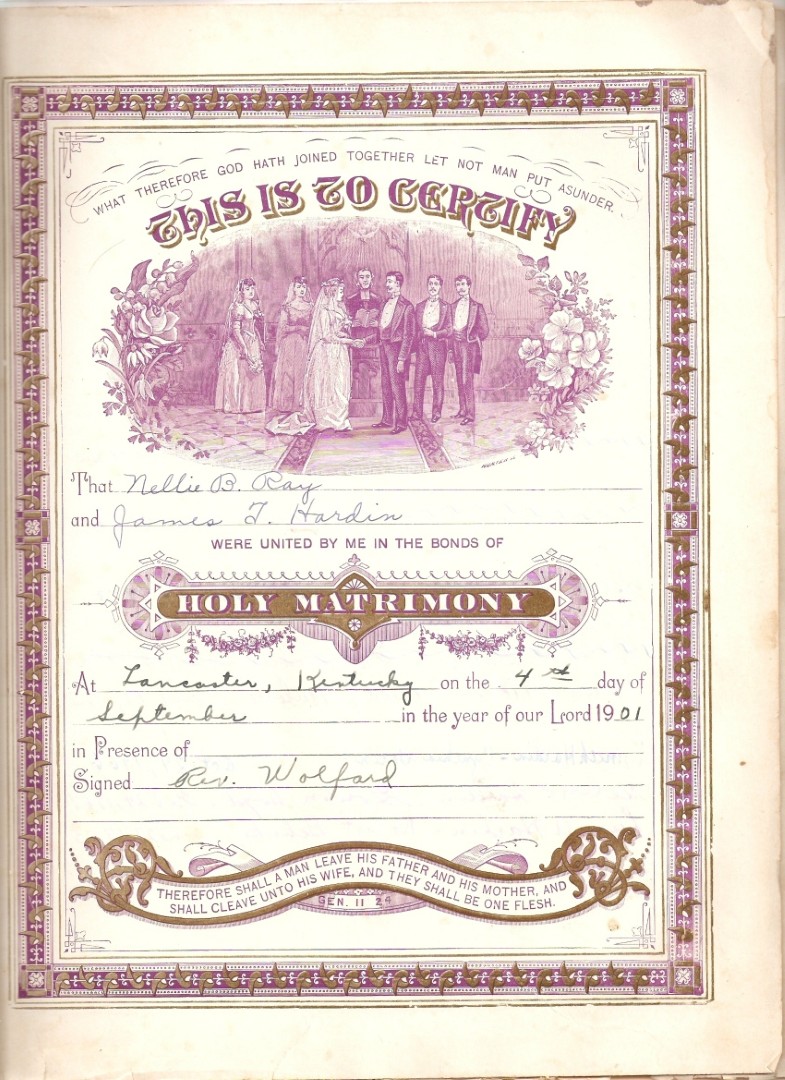 WHAT THEREFORE GOD HATH JOINED TOGETHER LET NOT MAN PUT ASUNDER.
THIS IS TO CERTIFY
That Nellie B. Ray
and James T. Hardin
WERE UNITED BY ME IN THE BONDS OF
HOLY MATRIMONY
At Lancaster, Kentucky on the 4th day of
September in the year of our Lord 1901
in Presence of
Signed Rev. Wolfard
THEREFORE SHALL A MAN LEAVE HIS FATHER AND HIS MOTHER, AND
SHALL CLEAVE UNTO HIS WIFE, AND THEY SHALL BE ONE FLESH.
GEN. II 24